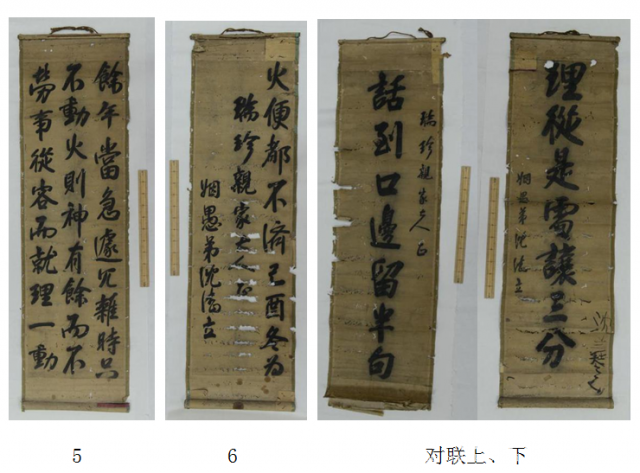 餘年當急遽冗雜時只
不動火則神有餘而不
勞事從容而就理一動
5
火便都不濟己酉冬為
瑞珍親家大人
姻愚弟沈立
6
瑞珍親家大人正
話到口邊留半句
理從是處讓三分
姻愚弟沈立
对联上、下